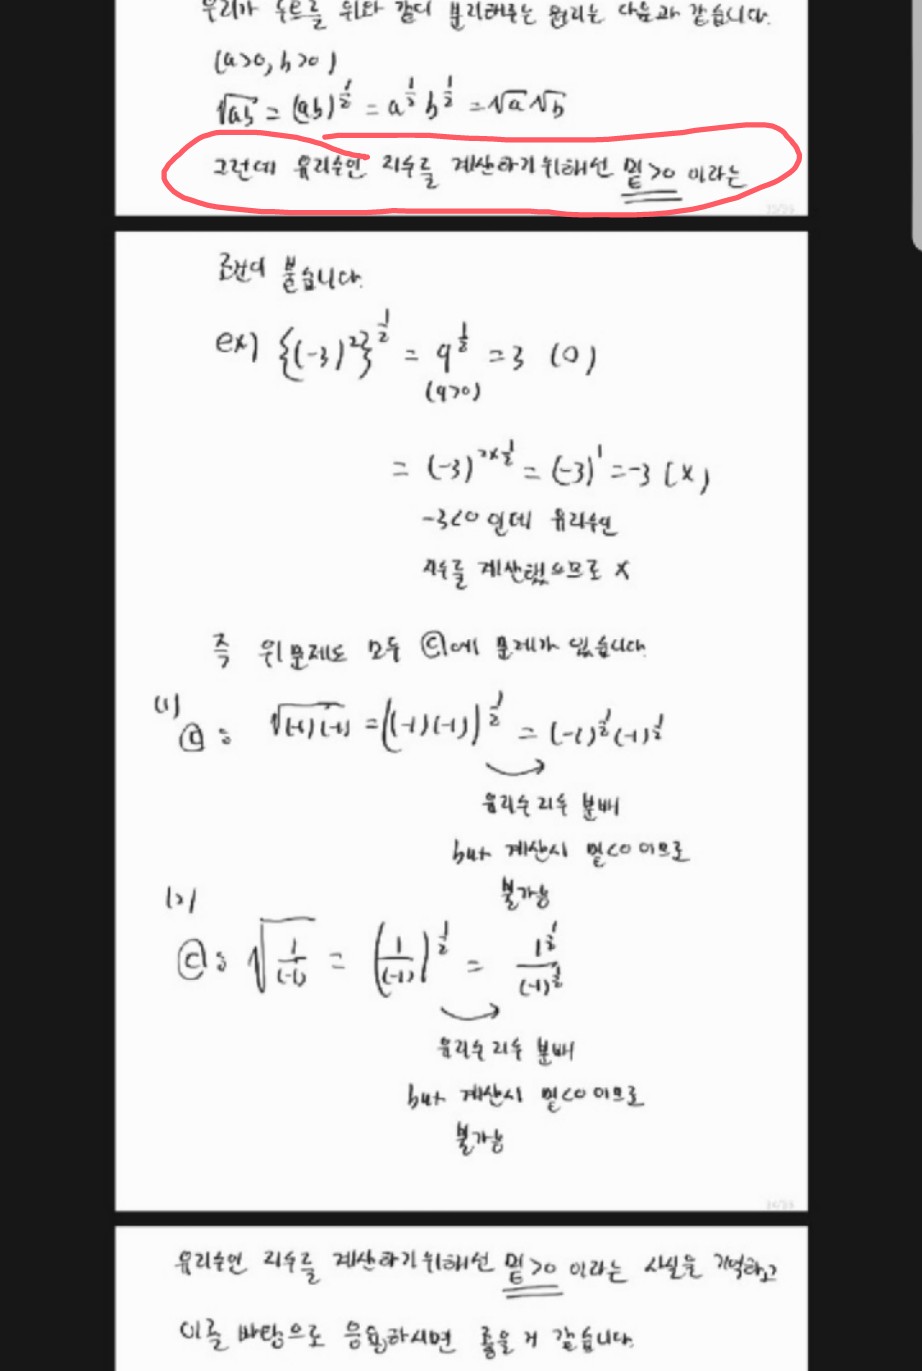 우리가 루트를 위와 같이 분리해주는 원리는 다음과 같습니다.
(a>0, b>0)
√ab = (ab)^½ = a^½ b^½ = √a√b
그런데 유리수인 지수를 계산하기위해선 밑>0 이라는
조건이 붙습니다.
ex) {(-3)²}^½ = 9^½ = 3 (O)
(9>0)
= (-3)^2×½ = (-3)^1 = -3 (X)
-3<0 인데 유리수인
지수를 계산했으므로 X
즉 위 문제도 모두 ⓒ에 문제가 있습니다.
(1)
ⓒ: √(-1)(-1) = ((-1)(-1))^½ = (-1)^½(-1)^½
유리수 지수 분배
but 계산시 밑<0 이므로
불가능
(2)
ⓒ: √1/(-1) = (1/(-1))^½ = 1^½/(-1)^½
유리수 지수 분배
but 계산시 밑<0 이므로
불가능
유리수인 지수를 계산하기위해선 밑>0 이라는 사실을 기억하고
이를 바탕으로 응용하시면 좋을 거 같습니다.